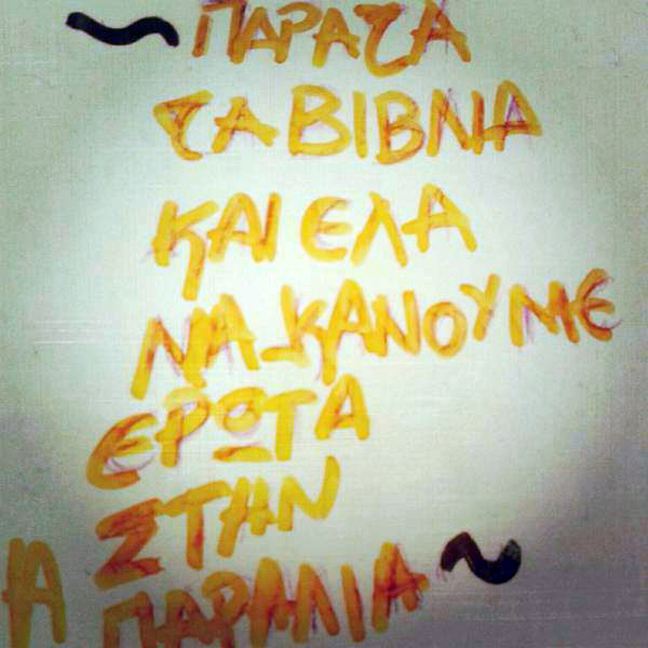 ~ΠΑΡΑΤΑ
ΤΑ ΒΙΒΛΙΑ
ΚΑΙ ΕΛΑ
ΝΑ ΚΑΝΟΥΜΕ
ΕΡΩΤΑ
ΣΤΗΝ
ΠΑΡΑΛΙΑ~